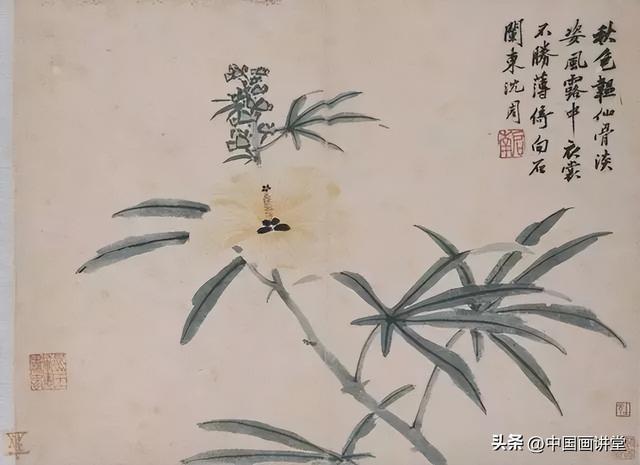 秋色韞仙骨淡
姿風露中衣裳
不勝薄倚向石
闌東沈周
头条 @中国画讲堂